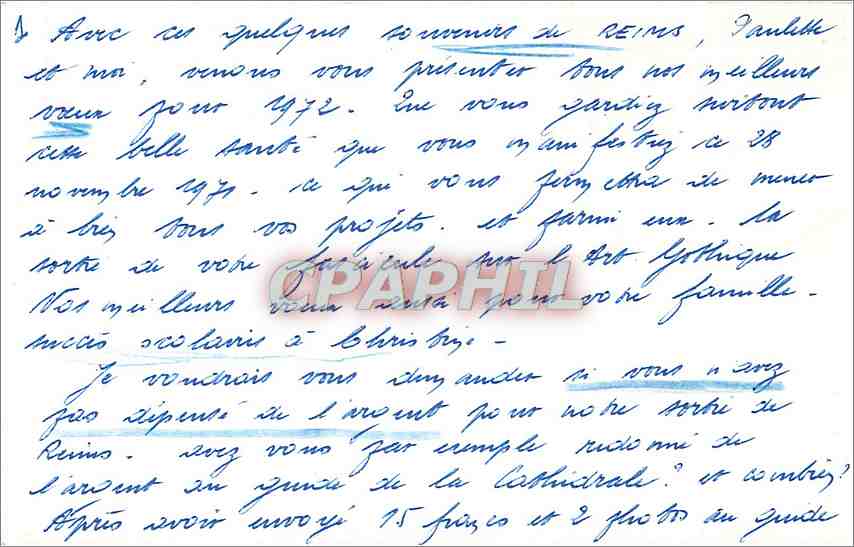 1 Avec ces quelques souvenirs de REIMS, Paulette
et moi, venons vous présenter tous nos meilleurs
vœux pour 1972. Que vous gardiez surtout
cette belle santé que vous manifestiez ce 28
novembre 1971. ce qui vous permettra de mener
à bien tous vos projets. et parmi eux. la
sortie de votre fascicule sur l'Art Gothique
CPAPHIL
Nos meilleurs vœux aussi pour votre famille.
succès scolaires à Christine.
Je voudrais vous demander si vous n'avez
pas dépensé de l'argent pour notre sortie de
Reims. avez vous par exemple redonné de
l'argent au guide de la Cathédrale? et combien?
Après avoir envoyé 15 francs et 2 photos au guide